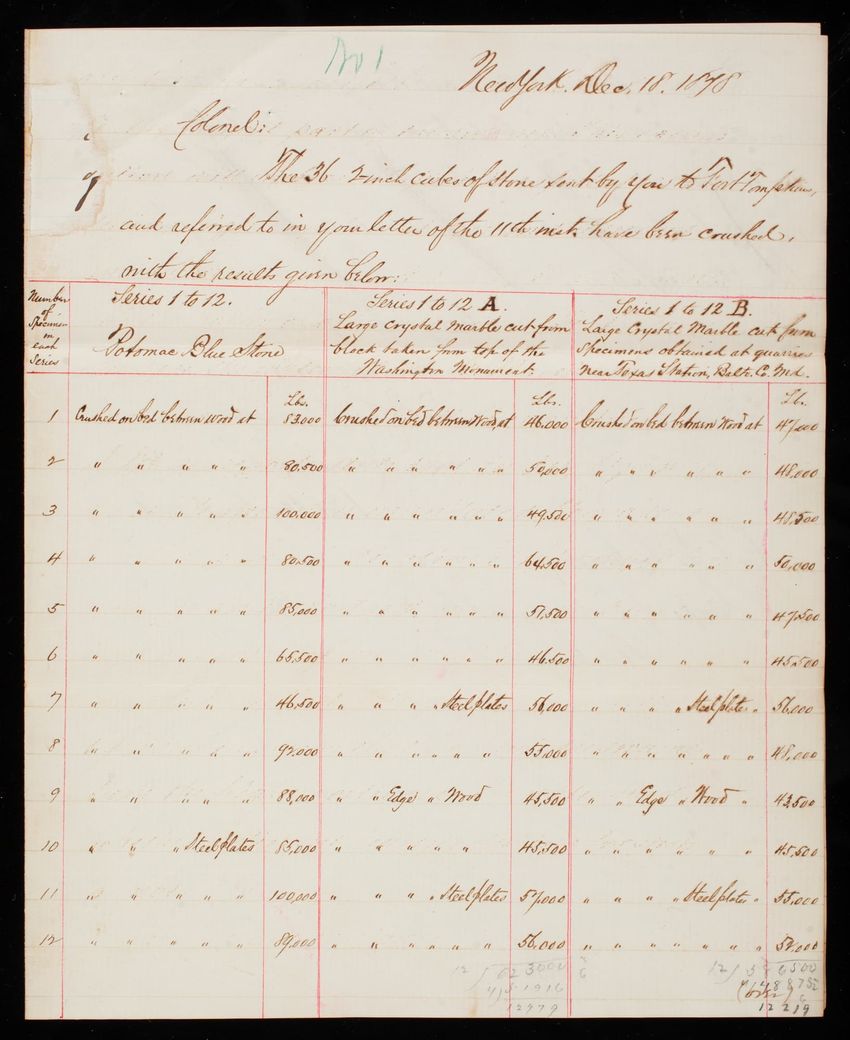 No 1
New York. Dec. 18. 1878
Colonel:
The 36 2-inch cubes of stone sent by you to Fort Tompkins,
and referred to in your letter of the 11th inst. have been crushed,
with the results given below:
Number of Specimen in each Series
Series 1 to 12.
Potomac Blue Stone
Series 1 to 12 A.
Large crystal marble cut from
block taken from top of the
Washington Monument.
Series 1 to 12 B.
Large Crystal Marble cut from
specimens obtained at quarries
near Texas Station, Balt. Co. Md.
Lbs. Lbs. Lbs.
1 Crushed on bed between wood at 83,000 Crushed on bed between Wood, at 46,000 Crushed on bed between Wood at 47,000
2 " " " " " 80,500 " " " " " " 50,000 " " " " " " 48,000
3 " " " " " 100,000 " " " " " " 49,500 " " " " " " 48,500
4 " " " " " 80,500 " " " " " " 64,500 " " " " " " 50,000
5 " " " " " 85,000 " " " " " " 57,500 " " " " " " 47,500
6 " " " " " 65,500 " " " " " " 46,500 " " " " " " 45,500
7 " " " " " 46,500 " " " " Steel plates 56,000 " " " " Steel plates " 56,000
8 " " " " " 92,000 " " " " " " 55,000 " " " " " " " 48,000
9 " " " " " 88,000 " " Edge " Wood 45,500 " " Edge " Wood " 43,500
10 " " " Steel plates 85,000 " " " " " 45,500 " " " " " " 45,500
11 " " " " " 100,000 " " " " Steel plates 57,000 " " " " Steel plates " 55,000
12 " " " " " 89,000 " " " " " " 56,000 " " " " " " " 52,000
12 ) 623000
4) 51916
12979
12) 586500
(over)